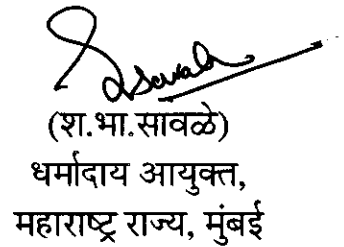 (श.भा.सावळे)
धर्मादाय आयुक्त,
महाराष्ट्र राज्य, मुंबई